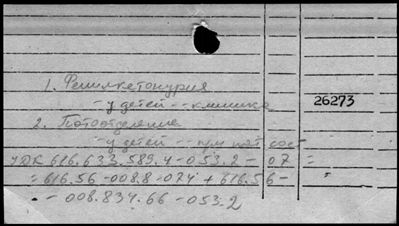 1. Фенилкетонурия
- у детей -- клиника
26273
2. Потоотделение
- у детей -- при пат. сост.
УДК 616.633.589.4-053.2 - 07 =
= 616.56-008.8-074 + 616.56 -
- 008.834.66 - 053.2